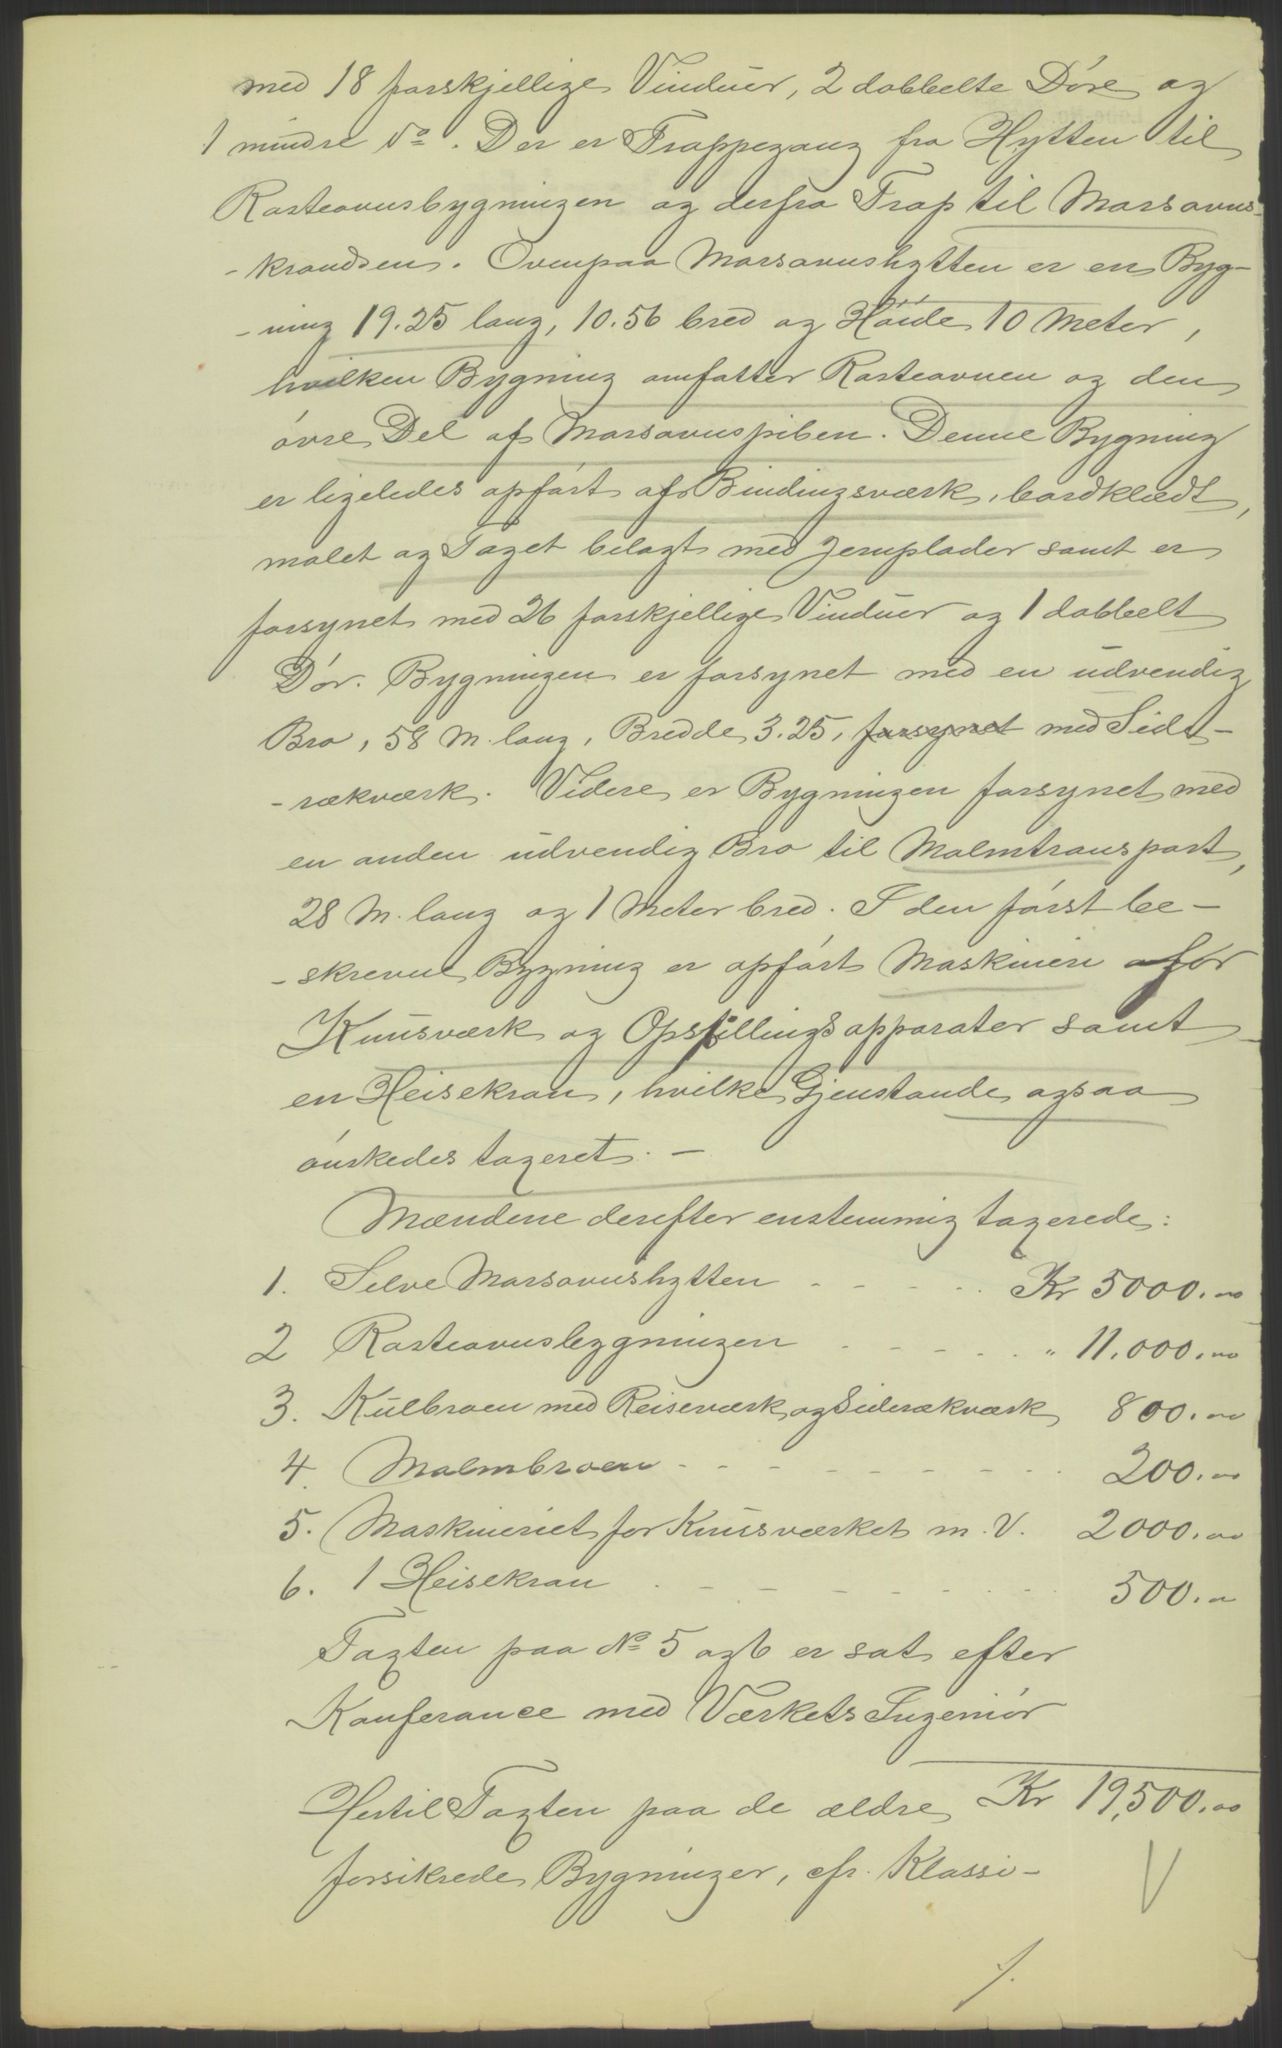 med 18 forskjellige Vinduer, 2 dobbelte Döre og
1 mindre do. Der er Trappegang fra Hytten til
Rosteovnsbygningen og derfra Trap til Marsovns-
-krandsen. Ovenpaa Marsovnshytten er en Byg-
-ning 19.25 lang, 10.56 bred og Höide 10 Meter,
hvilken Bygning omfatter Rosteovnen og den
övre Del af Marsovnspiben. Denne Bygning
er ligeledes opfört af Bindingsværk, bordklædt,
malet og Taget belagt med Jernplader samt er
forsynet med 26 forskjellige Vinduer og 1 dobbelt
Dör. Bygningen er forsynet med en udvendig
Bro, 58 M. lang, Bredde 3.25, forsynet med Side-
-rækværk. Videre er Bygningen forsynet med
en anden udvendig Bro til Malmtransport,
28 M. lang og 1 Meter bred. I den först be-
-skrevne Bygning er opfört Maskineri for
Knusværk og Opstillingsapparater samt
en Heisekran, hvilke Gjenstande ogsaa
önskedes taxeret. -
Mændene derefter enstemmig taxerede:
1. Selve Marsovnshytten - - - - - Kr 5000.00
2 Rosteovnsbygningen - - - - - " 11.000.00
3. Kulbroen med Reiseværk og Siderækværk 800.00
4. Malmbroen - - - - - - - - - 200.00
5. Maskineriet for Knusværket m. V. 2000.00
6. 1 Heisekran - - - - - - - - 500.00
Taxten paa No 5 og 6 er sat efter
Konferance med Værkets Ingeniör
Kr 19,500.00
Hertil Taxten paa de ældre
forsikrede Bygninger, cfr. Klassi-
V
./.